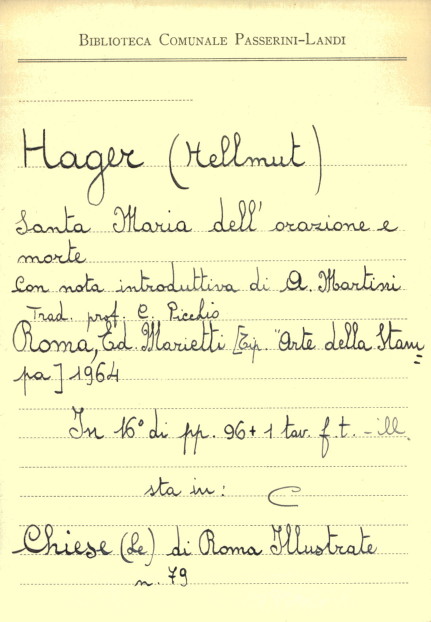 BIBLIOTECA COMUNALE PASSERINI-LANDI
Hager (Hellmut)
Santa Maria dell' orazione e
morte
Con nota introduttiva di A. Martini
Trad. prof. C. Picchio
Roma, Ed. Marietti [Tip. "Arte della Stam=
pa] 1964
In 16° di pp. 96 + 1 tav. f. t. - ill.
sta in: C
Chiese (Le) di Roma Illustrate
n. 79